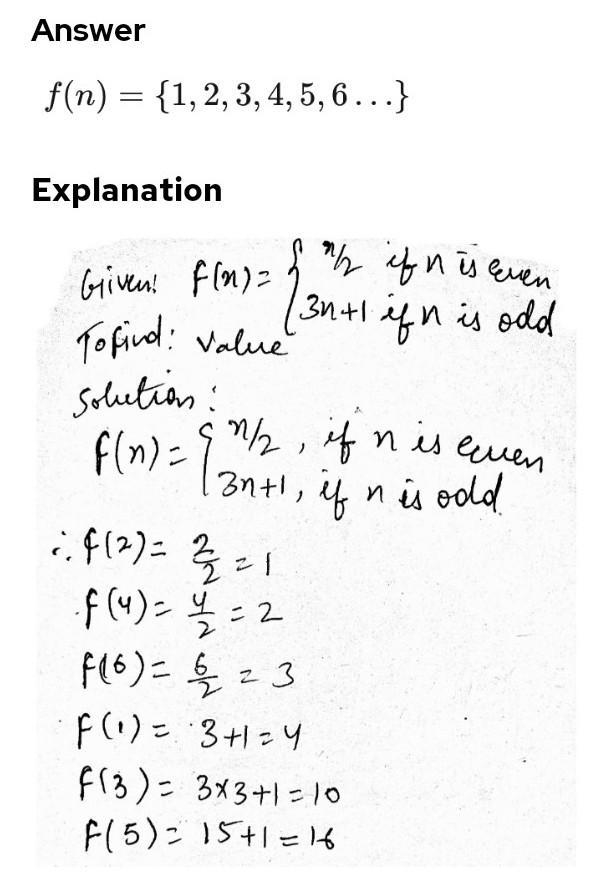 Answer
f(n) = {1, 2, 3, 4, 5, 6 ...}
Explanation
Given: f(n) = { n/2 if n is even
3n+1 if n is odd
To find: Value
Solution:
f(n) = { n/2, if n is even
3n+1, if n is odd.
∴ f(2) = 2/2 = 1
f(4) = 4/2 = 2
f(6) = 6/2 = 3
f(1) = 3+1 = 4
f(3) = 3×3+1 = 10
f(5) = 15+1 = 16